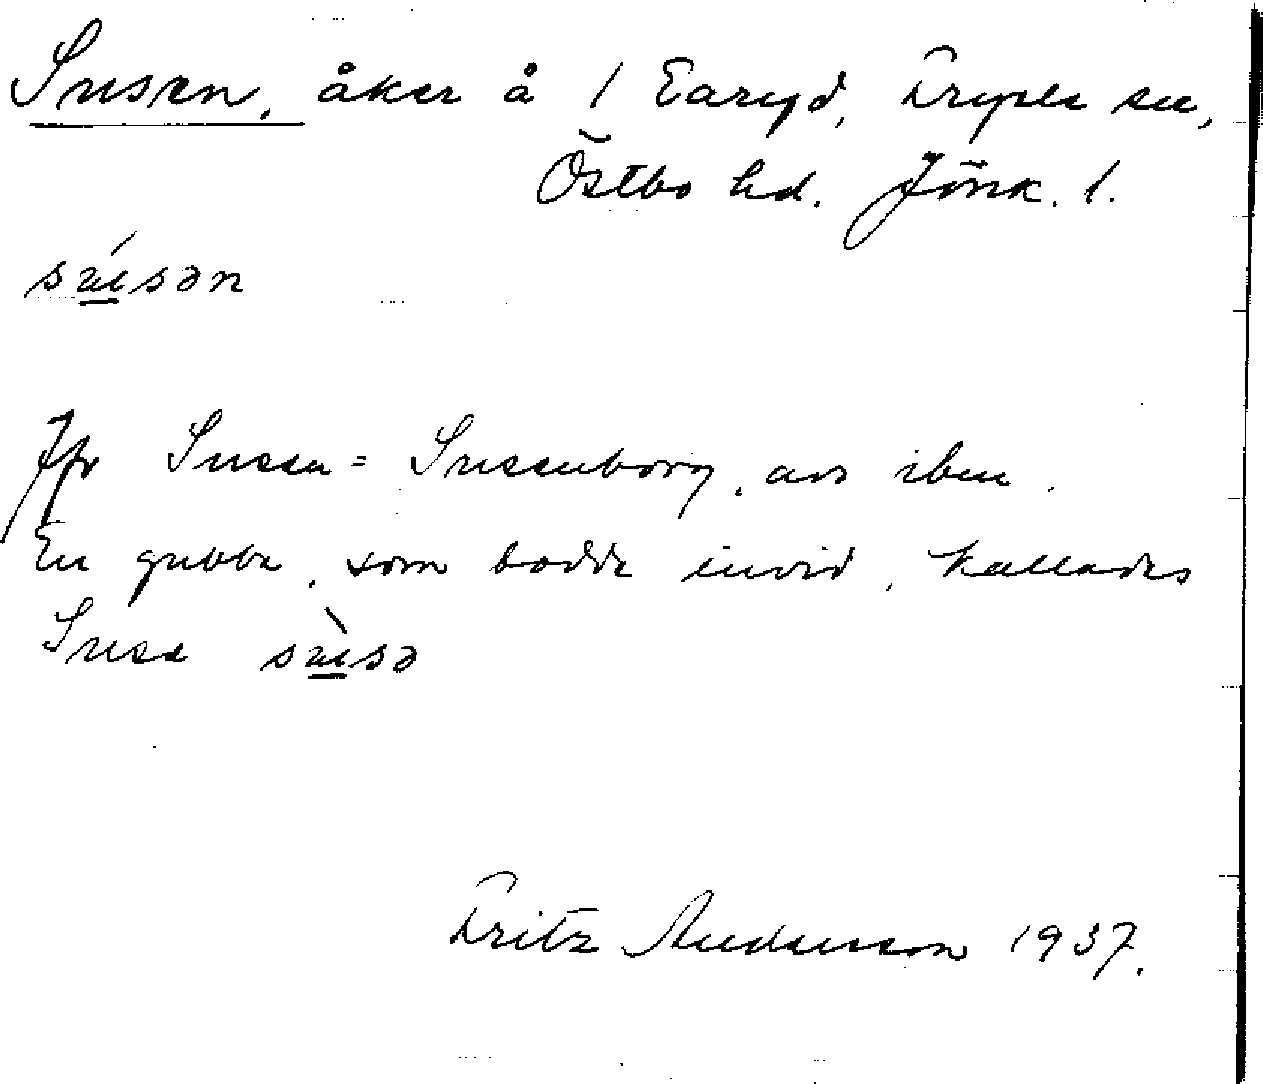 Susen, åker å 1 Earyd, Fryele sn,
Östbo hd. Jönk. l.
súsən
Jfr Susen = Susenborg, avs ibm.
En gubbe, som bodde invid, kallades
Suse sùsə
Fritz Andersson 1937.